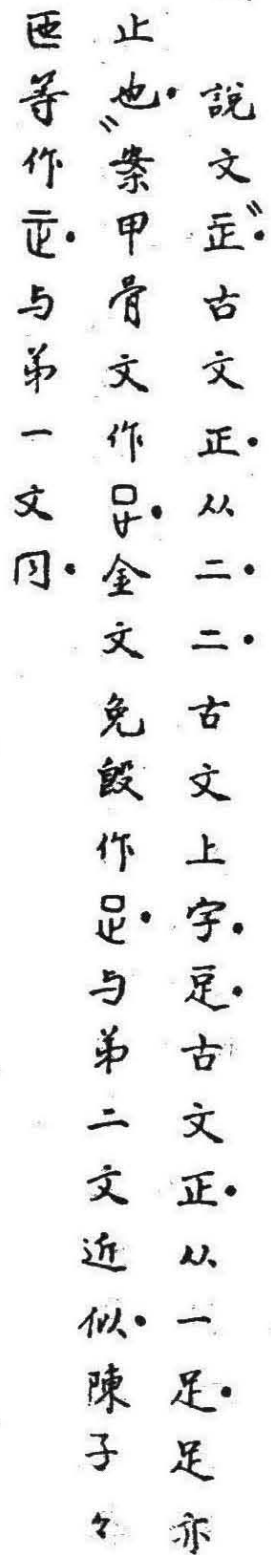 說文〝·古文正·从二·二古文上字·古文正·从一足·足亦
止也·〝案甲骨文作·金文免𣪘作·与弟二文近似·陳子々
匜等作·与弟一文同·